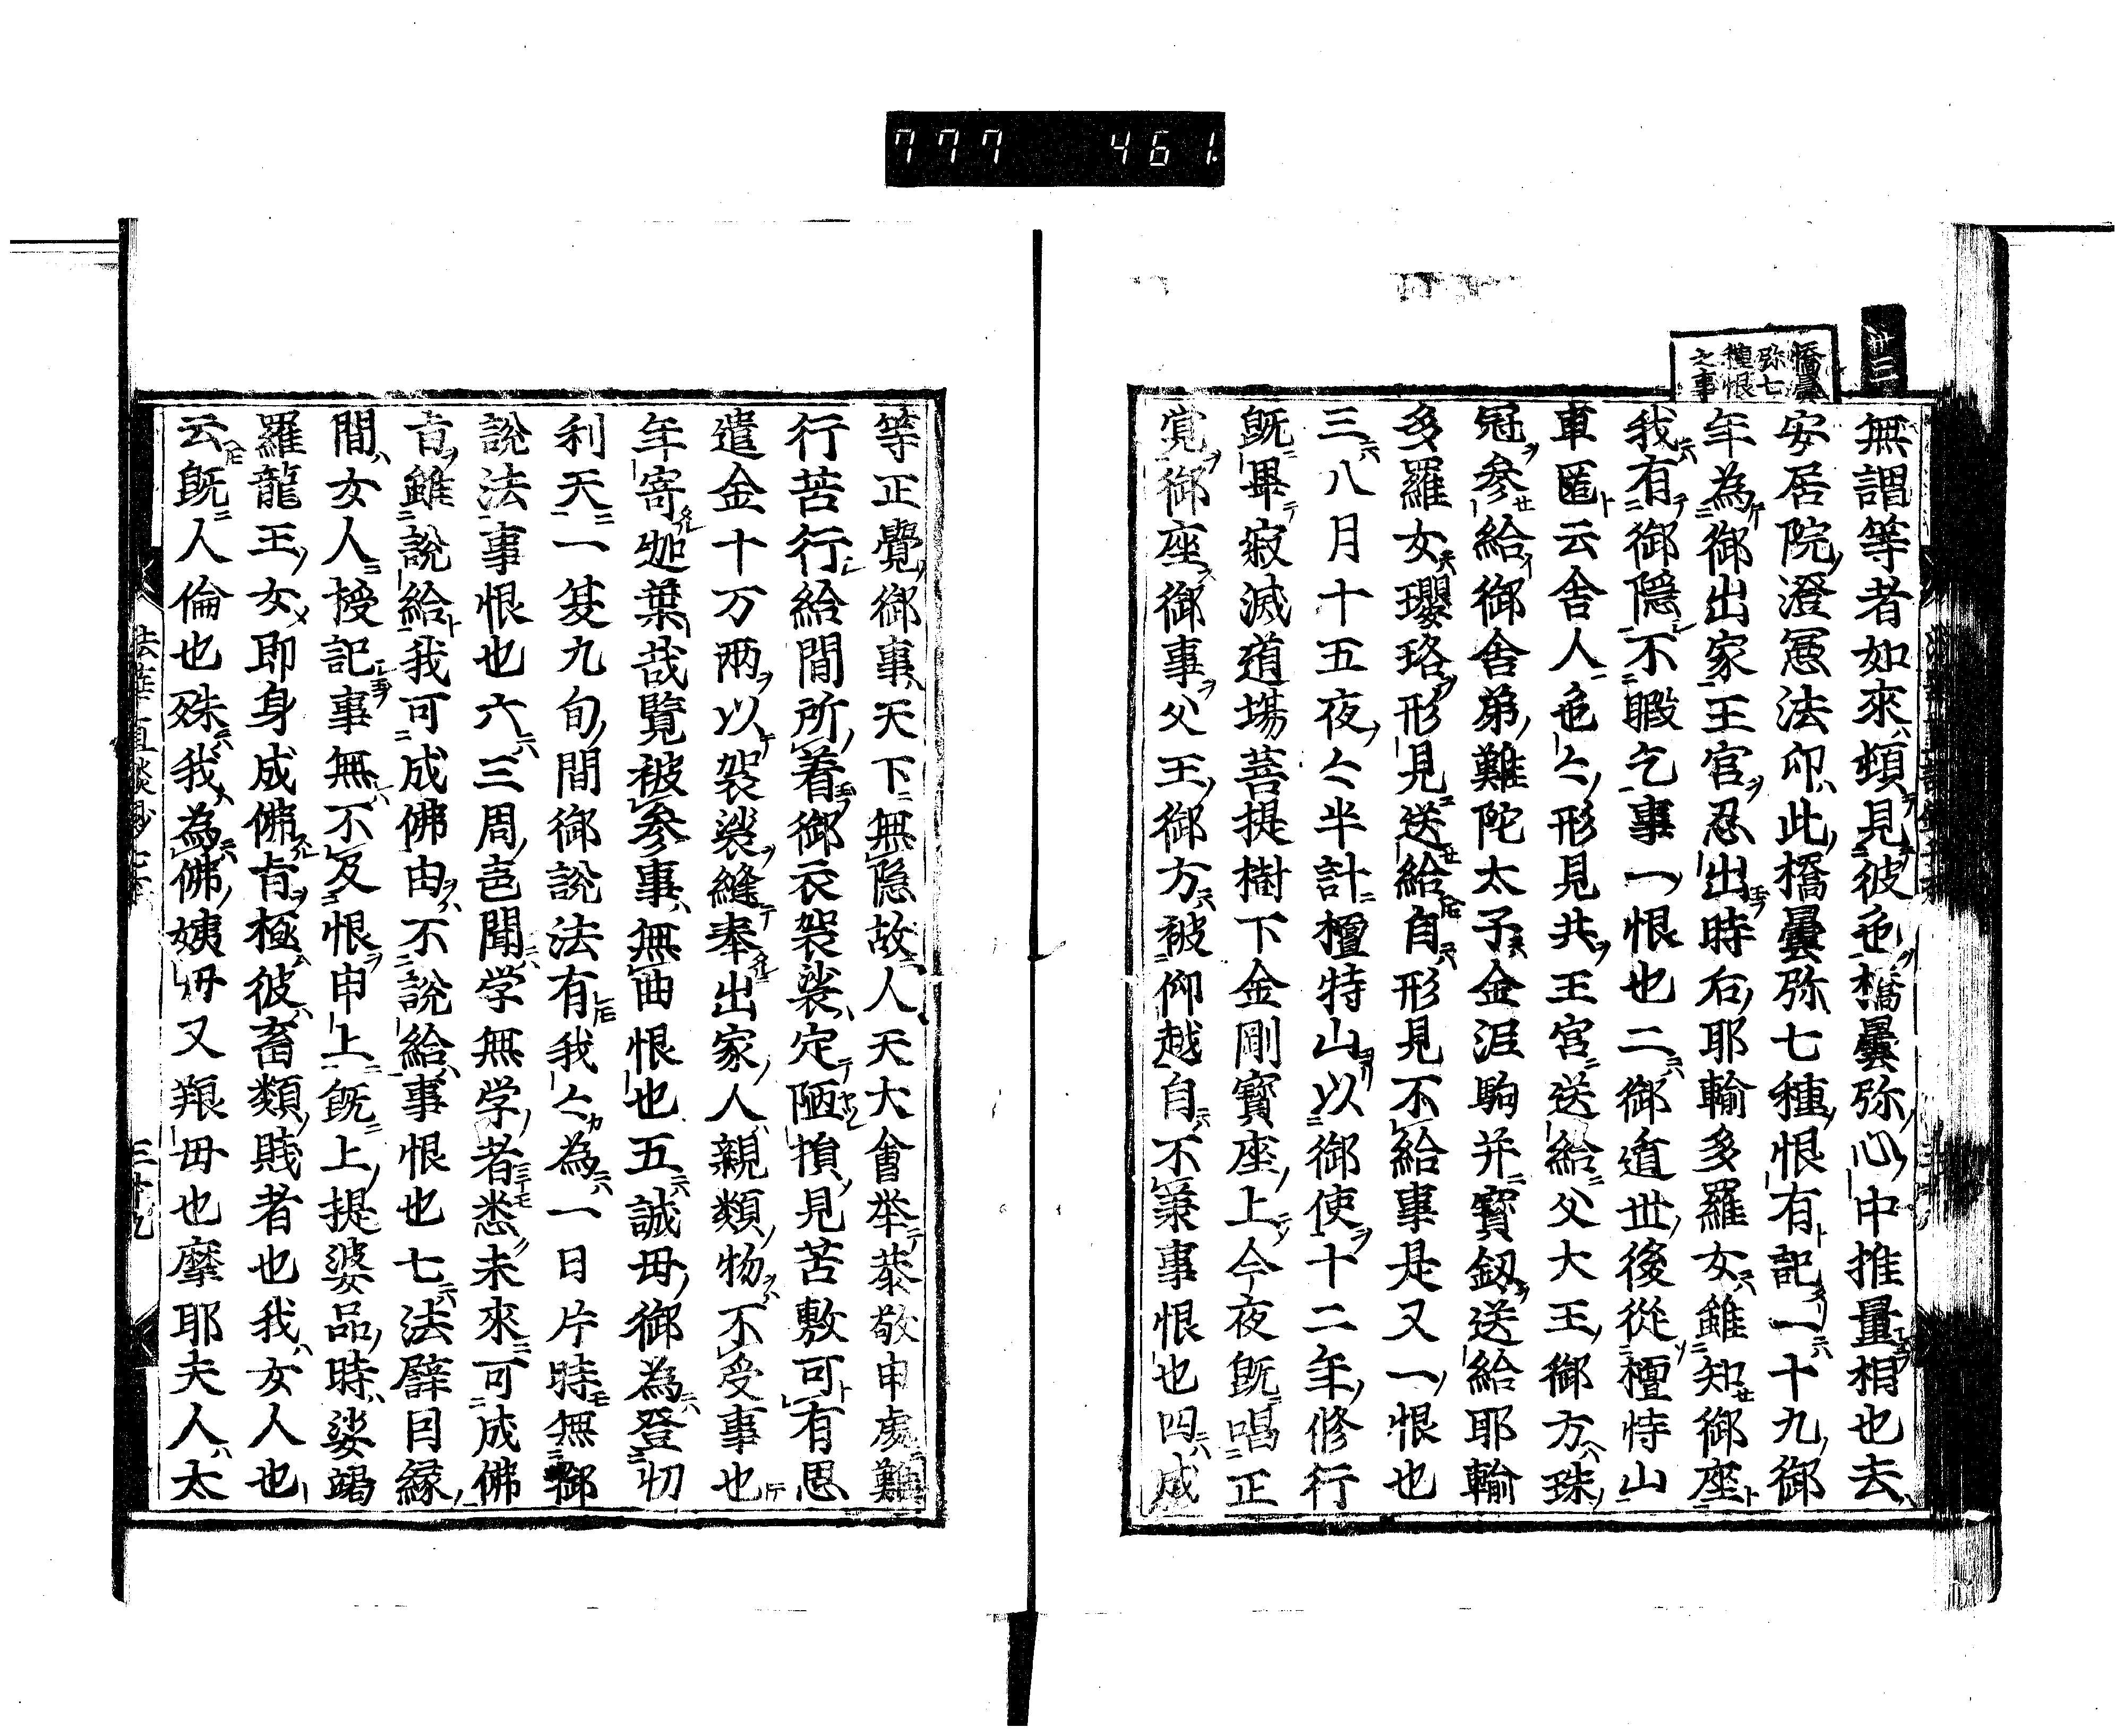 777 461.
卅二
憍曇
弥七
種恨
之事
無謂等者如來頻見彼色憍曇弥心中推量相也去
安居院澄憲法印此橋曇弥七種恨有記一十九御
年為御出家王宮忍出時右耶輸多羅女雖知御座
我有御隱不暇乞事一恨也二御遁世後從檀特山
車匿云舍人色々形見共王宮送給父大王御方珠
冠參給御舍弟難陀太子金泥駒并寶釼送給耶輸
多羅女瓔珞形見送給自形見不給事是又一恨也
三八月十五夜々半計檀特山以御使十二年修行
既畢寂滅道場菩提樹下金剛寶座上今夜既唱正
覚御座御事父王御方被仰越自不秉事恨也四成
等正覺御事天下無隱故人天大會挙恭敬申處難
行苦行給間所着御衣袈裟定陋損見苦敷可有思
遣金十万兩以袈裟縫奉出家人親類物不受事也
年寄迦葉哉覽被參事無曲恨也五誠母御為登忉
利天一夏九旬間御說法有我々為一日片時無御
說法事恨也六三周声聞学無学者悉未來可成佛
旨雖說給我可成佛由不說給事恨也七法譬因緣
間女人授記事無不及恨申上既上提婆品時娑竭
羅龍王女即身成佛旨極彼畜類賤者也我女人也
云既人倫也殊我為佛姨母又粮母也摩耶夫人太
法華直談鈔七末 三十九